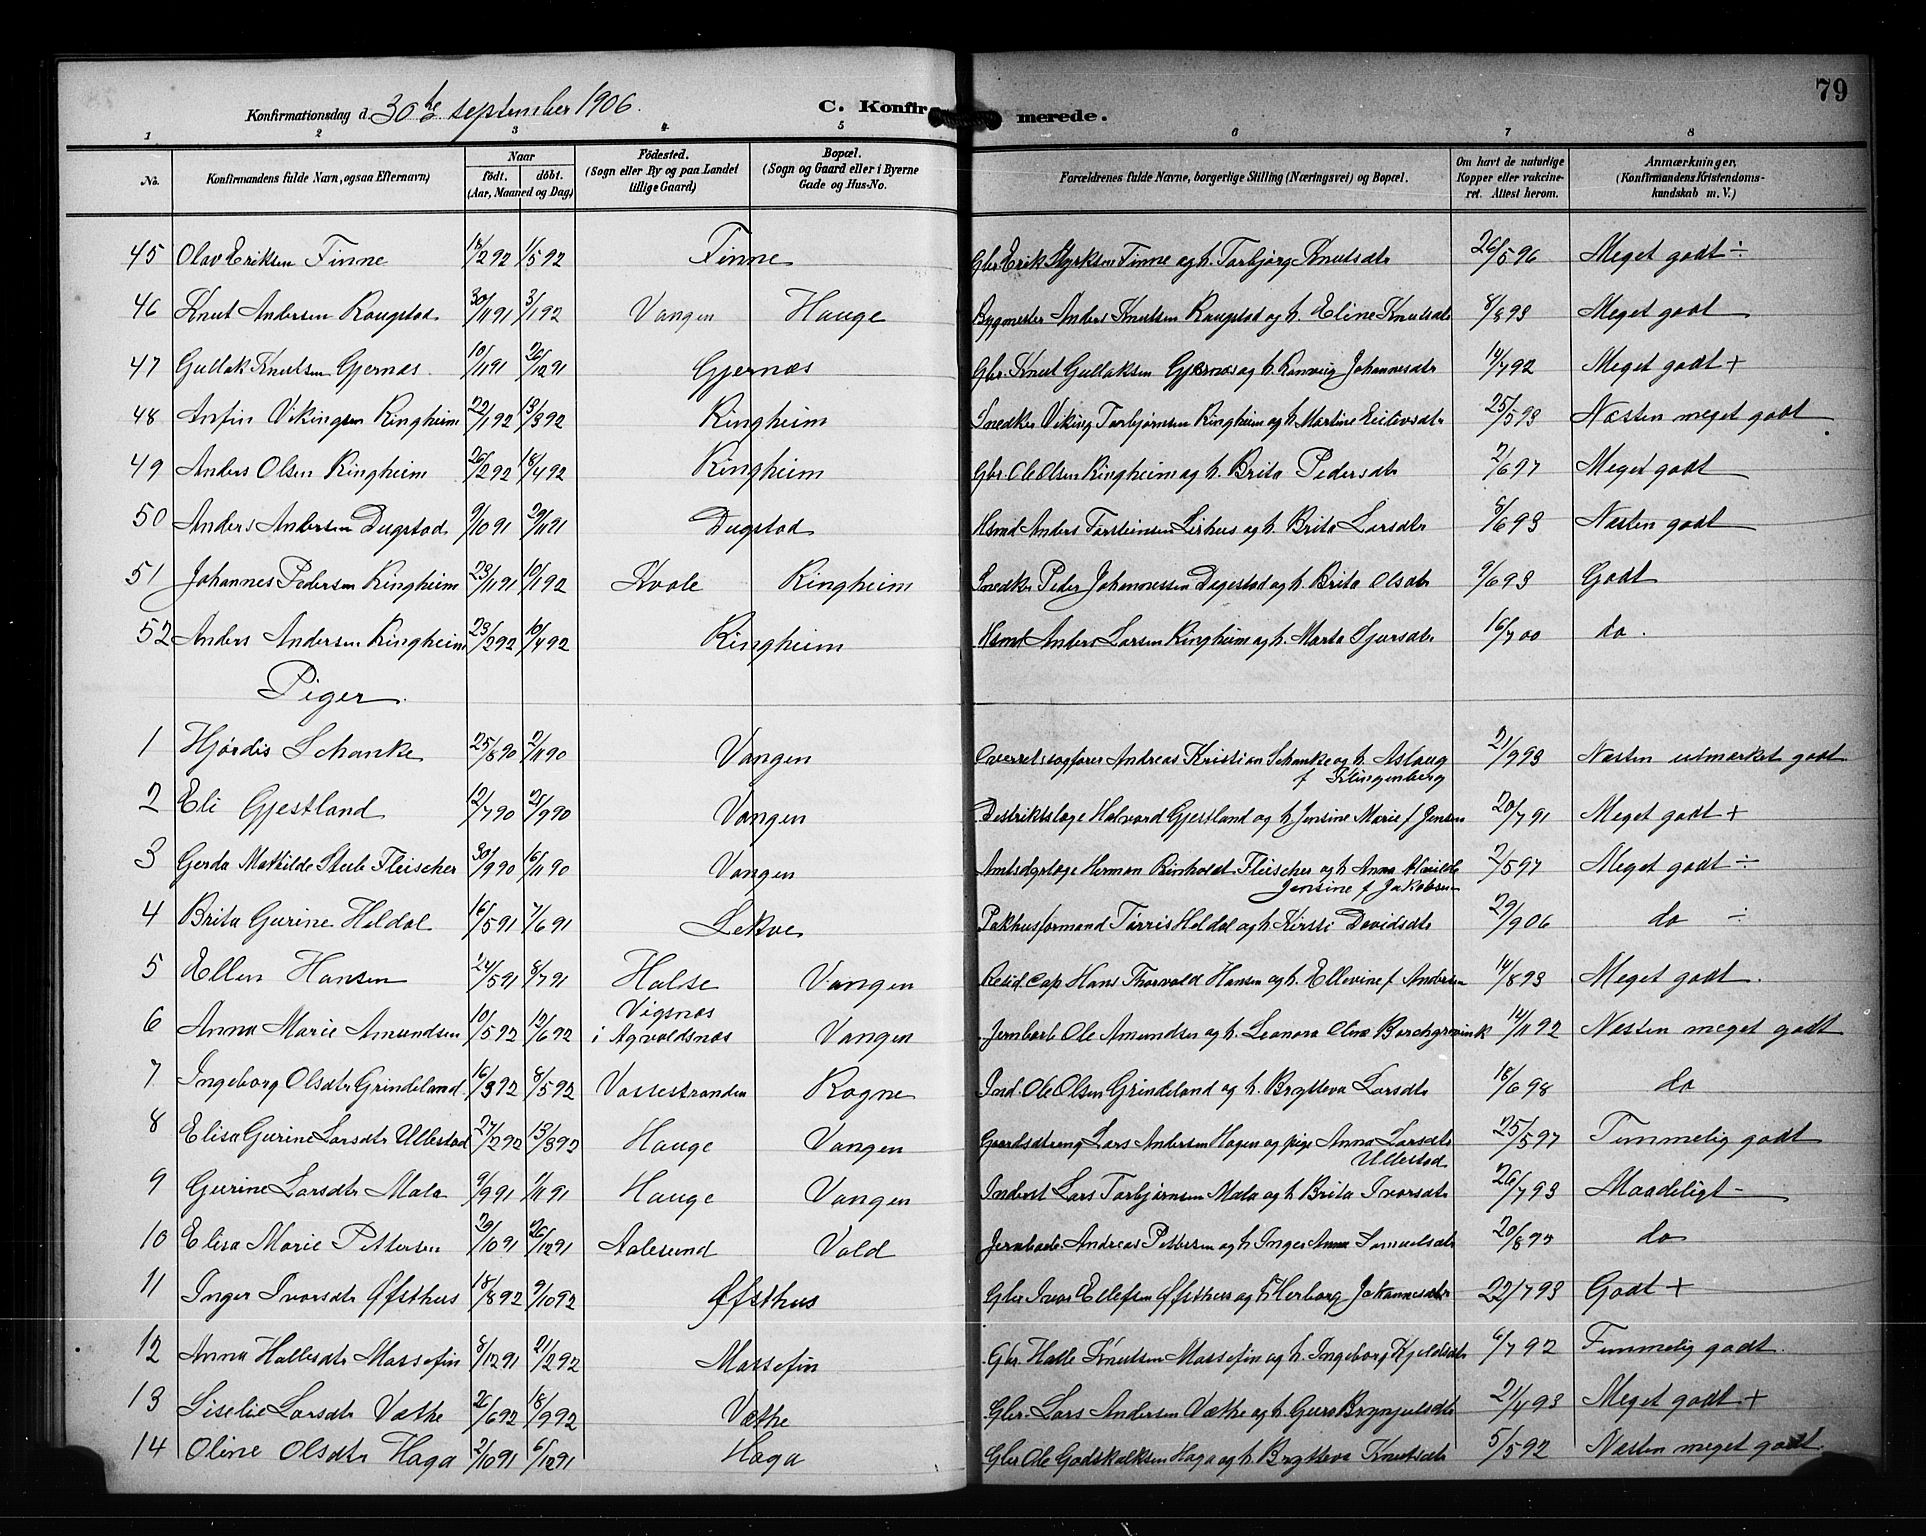 79
Konfirmationsdag d. 30te september 1906. C. Konfirmerede.
1 2 3 4 5 6 7 8
No. Konfirmandens fulde Navn, ogsaa Efternavn) Naar født. døbt. (Aar, Maaned og Dag) Fødested. (Sogn eller By og paa Landet tillige Gaard) Bopæl. (Sogn og Gaard eller i Byerne Gade og Hus-No. Forældrenes fulde Navne, borgerlige Stilling (Næringsvei) og Bopæl. Om havt de naturlige Kopper eller vakcineret. Attest herom. Anmærkninger, (Konfirmandens Kristendomskundskab m. V.)
45 Olav Eriksen Finne 18/2 92 1/5 92 Finne Gbr. Erik Styrksen Finne og h. Torbjørg Knutsdtr 26/5 96 Meget godt ÷
46 Knut Andersen Rougstad 30/11 91 3/1 92 Vangen Hauge Bygmester Anders Knutsen Rougstad og h. Eline Knutsdtr 8/8 93 Meget godt
47 Gullak Knutsen Gjernæs 10/11 91 26/12 91 Gjernæs Gbr. Knut Gullaksen Gjernæs og h. Ranveig Johannesdtr 14/7 92 Meget godt +
48 Arfin Vikingsen Ringheim 22/1 92 13/3 92 Ringheim Snedker Viking Torbjørnsen Ringheim og h. Martine Eilevsdtr 25/5 93 Næsten meget godt
49 Anders Olsen Ringheim 26/2 92 18/4 92 Ringheim Gbr. Ole Olsen Ringheim og h. Brita Pedersdtr 2/6 97 Meget godt
50 Anders Andersen Dugstad 9/10 91 29/11 91 Dugstad Hsmd Anders Torsteinsen Lirhus og h. Brita Larsdtr 8/6 93 Næsten godt
51 Johannes Pedersen Ringheim 23/11 91 10/1 92 Kvole Ringheim Snedker Peder Johannessen Dagestad og h. Brita Olsdtr 9/6 93 Godt
52 Anders Andersen Ringheim 23/2 92 10/4 92 Ringheim Hsmd Anders Larsen Ringheim og h. Marta Sjursdtr 16/7 00 do.
Piger.
1 Hjørdis Schanke 25/8 90 2/11 90 Vangen Overretssagfører Andreas Kristian Schanke og h. Aslaug f Klingenberg 21/9 93 Næsten udmærket godt
2 Eli Gjestland 12/7 90 21/9 90 Vangen Distriktslæge Halvard Gjestland og h. Jensine Marie f Jensen 20/7 91 Meget godt +
3 Gerda Mathilde Steele Fleischer 30/9 90 16/11 90 Vangen Amtsdyrlæge Herman Reinholdt Fleischer og h. Anna Jensine f Jakobsen 2/5 97 Meget godt ÷
4 Brita Gurine Heldal 16/5 91 7/6 91 Lekve Pakhusformand Tørris Heldal og h. Kirsti Davidsdtr 29/9 06 do ÷
5 Ellen Hansen 24/5 91 8/7 91 Halse Vangen Resid. Cap. Hans Thorvald Hansen og h. Ellevine f Andersen 14/8 93 Meget godt.
6 Anna Marie Amundsen 10/5 92 19/6 92 Vigsnæs i Agvaldsnæs Vangen Jernbarb Ole Amundsen og h. Leonora Olva Borchgrevink 14/11 92 Næsten meget godt
7 Ingeborg Olsdtr Grindeland 16/3 92 8/5 92 Vossestranden Rogne Ind. Ole Olsen Grindeland og h. Brytteva Larsdtr 18/6 98 do
8 Elisa Gurine Larsdtr Ullestad 27/2 92 13/3 92 Hauge Vangen Gaardsdreng Lars Andersen Hagen og pige Anna Larsdtr Ullestad 25/5 97 Temmelig godt
9 Gurine Larsdtr Mala 9/9 91 1/11 91 Hauge Vangen Inderst Lars Torbjørnsen Mala og h. Brita Ivarsdtr 26/7 93 Maadeligt
10 Elisa Marie Pettersen 29/10 91 26/12 91 Aalesund Vold Jernbarb Andreas Pettersen og h. Inger Anna Samuelsdtr 20/8 97 do
11 Inger Ivarsdtr Øfsthus 18/8 92 9/10 92 Øfsthus Gbr Ivar Ellefsen Øfsthus og h Herborg Johannesdtr 22/7 93 Godt +
12 Anna Hallesdtr Massefin 8/12 91 21/2 92 Massefin Gbr. Halle Knutsen Massefin og h. Ingeborg Kjeldsdtr 6/7 92 Temmelig godt.
13 Liselie Larsdtr Væthe 26/6 92 18/9 92 Væthe Gbr. Lars Andersen Væthe og h. Guro Brynjulsdtr 21/4 93 Meget godt +
14 Oline Olsdtr Haga 2/10 91 6/12 91 Haga Gbr Ole Godskalksen Haga og h. Brytteva Knutsdtr 5/5 92 Næsten meget godt.